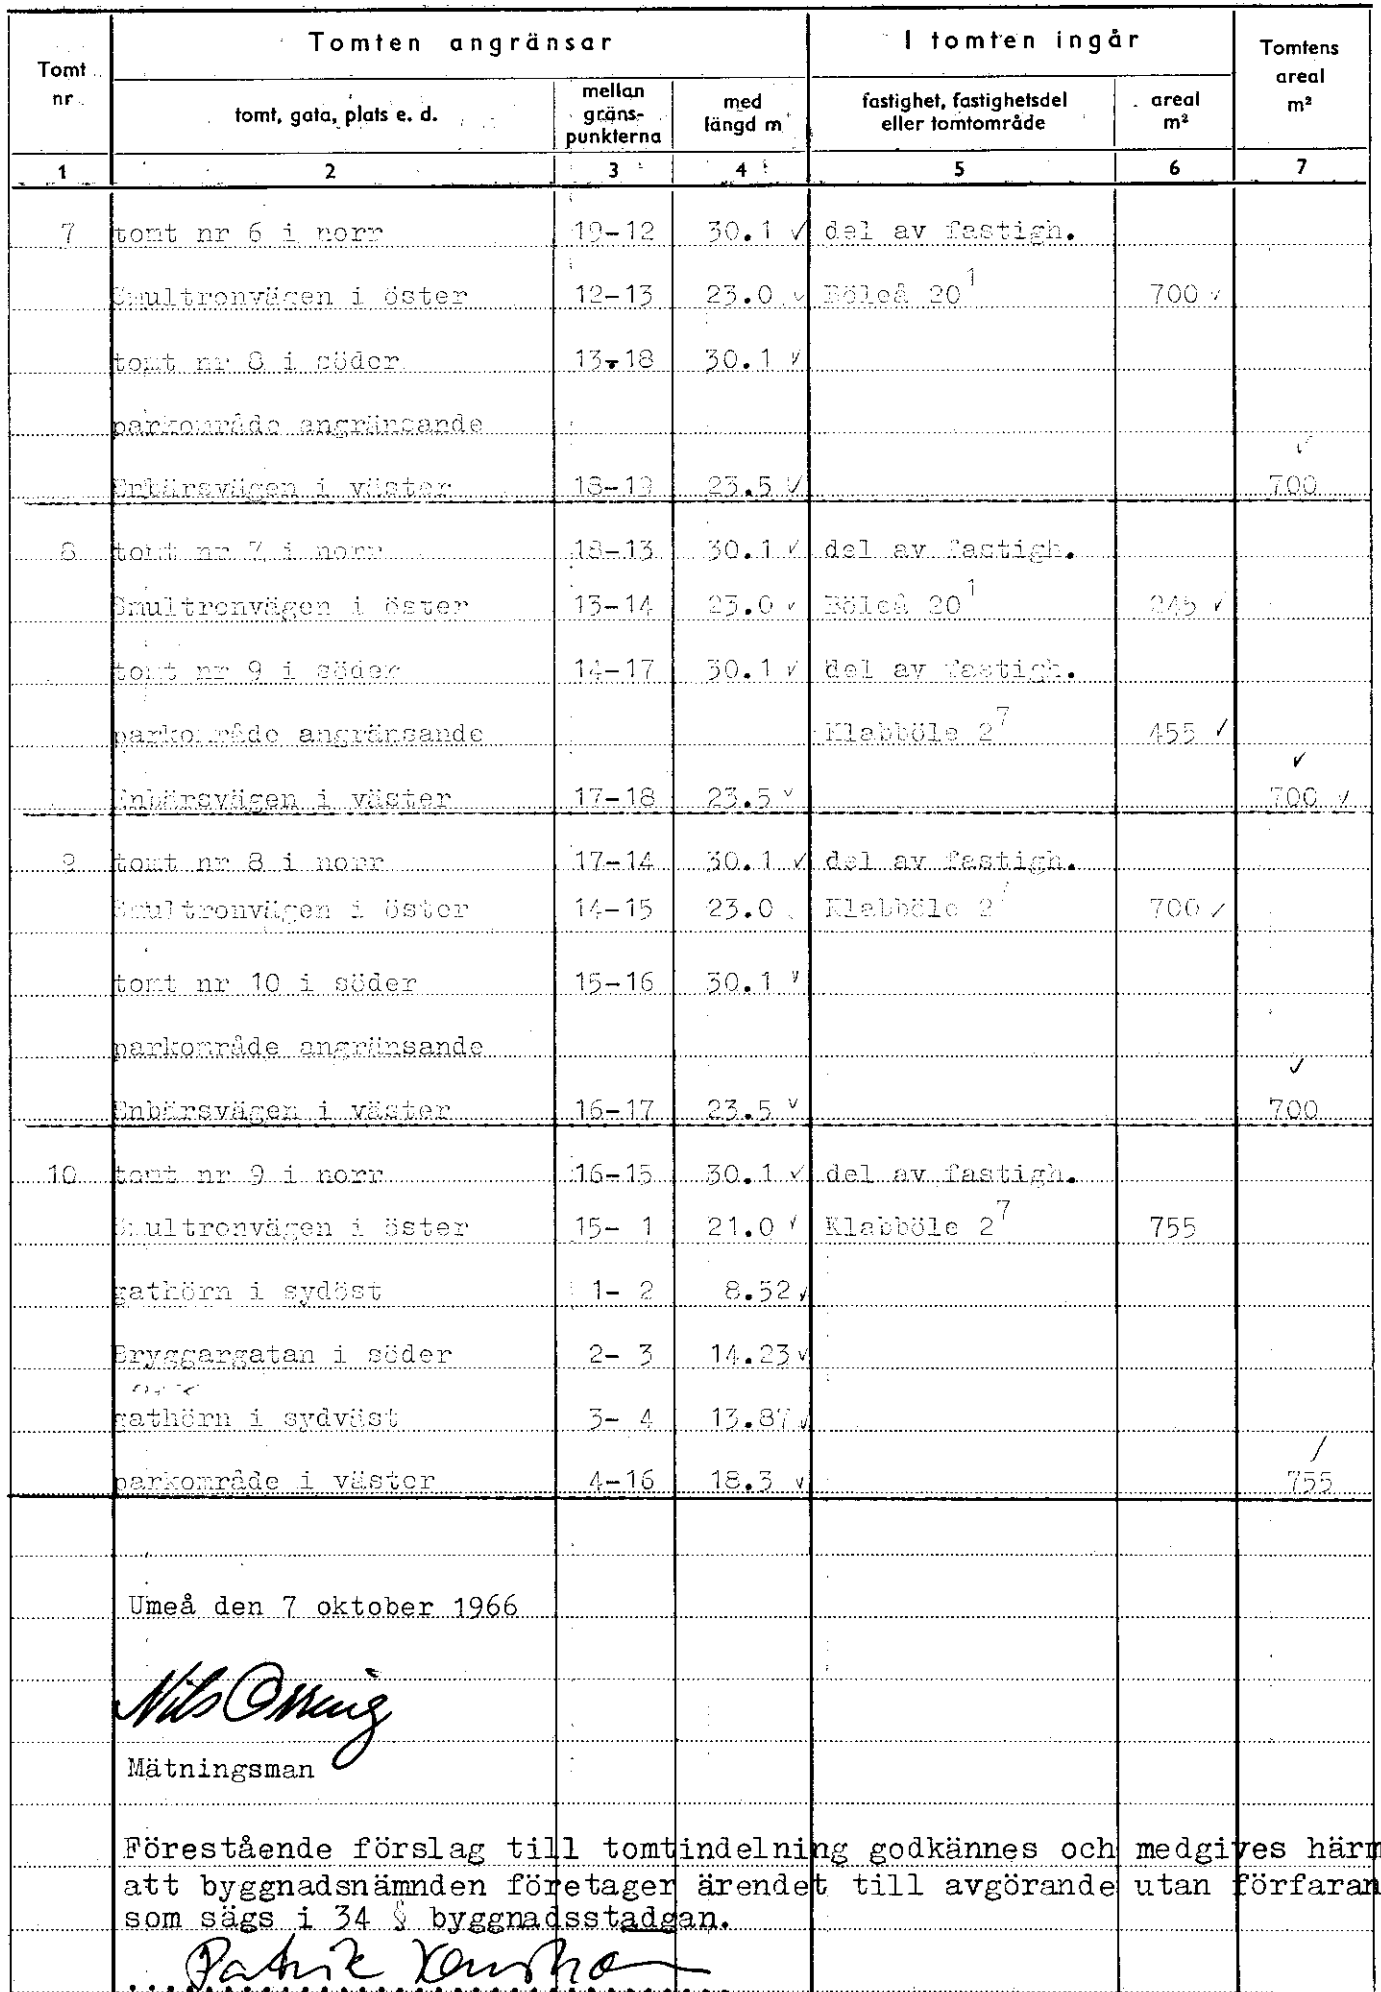 Tomt nr
Tomten angränsar
I tomten ingår
Tomtens areal m²
tomt, gata, plats e. d.
mellan gräns-punkterna
med längd m
fastighet, fastighetsdel eller tomtområde
areal m²
1 2 3 4 5 6 7
7 tomt nr 6 i norr 19-12 30.1 ✓ del av fastigh.
Smultronvägen i öster 12-13 23.0 ✓ Böleå 20¹ 700 ✓
tomt nr 8 i söder 13-18 30.1 ✓
parkområde angränsande ✓
Enbärsvägen i väster 18-19 23.5 ✓ 700
8 tomt nr 7 i norr 18-13 30.1 ✓ del av fastigh.
Smultronvägen i öster 13-14 23.0 ✓ Böleå 20¹ 245 ✓
tomt nr 9 i söder 14-17 30.1 ✓ del av fastigh.
parkområde angränsande Klabböle 2⁷ 455 ✓
✓
Enbärsvägen i väster 17-18 23.5 ✓ 700 ✓
9 tomt nr 8 i norr 17-14 30.1 ✓ del av fastigh.
Smultronvägen i öster 14-15 23.0 Klabböle 2⁷ 700 ✓
tomt nr 10 i söder 15-16 30.1 ✓
parkområde angränsande
✓
Enbärsvägen i väster 16-17 23.5 ✓ 700
10 tomt nr 9 i norr 16-15 30.1 ✓ del av fastigh.
Smultronvägen i öster 15- 1 21.0 ✓ Klabböle 2⁷ 755
gathörn i sydöst 1- 2 8.52 ✓
Bryggargatan i söder 2- 3 14.23 ✓
gathörn i sydväst 3- 4 13.87 ✓
parkområde i väster 4-16 18.3 ✓ 755
Umeå den 7 oktober 1966
Nils
Mätningsman
Förestående förslag till tomtindelning godkännes och medgives härm
att byggnadsnämnden företager ärendet till avgörande utan förfaran
som sägs i 34 § byggnadsstadgan.
Patrik